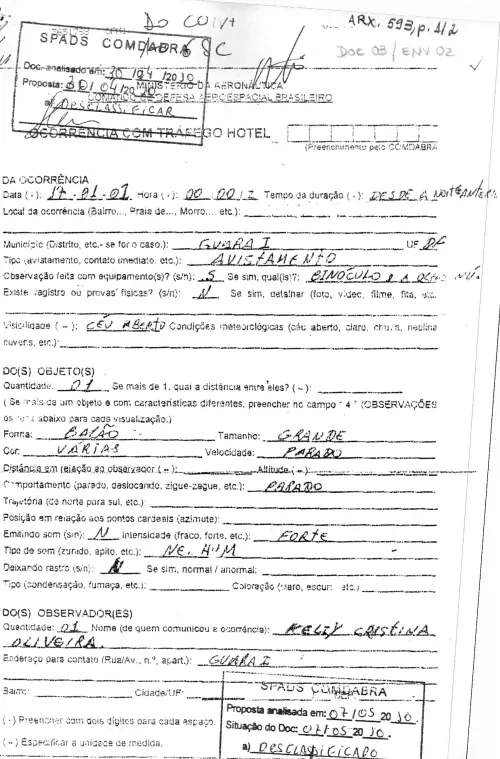 Do COIVA
ARX. 593, p. 1/2
SPADS COMDABRA
DOC 03 / ENV 02
Doc. analisado em: 30 /04 /2010
Proposta: 30/ 04/2010
MINISTÉRIO DA AERONÁUTICA
a) DESCLASSIFICAR
COMANDO DE DEFESA AEROESPACIAL BRASILEIRO
OCORRÊNCIA COM TRÁFEGO HOTEL
(Preenchimento pelo COMDABRA
DA OCORRÊNCIA
Data (-): 17-01-01, Hora (-): 00:00 / Z Tempo da duração (-): DESDE A NOITE ANTERI
Local da ocorrência (Bairro..., Praia de..., Morro.... etc.):
Município (Distrito, etc.- se for o caso.): GUARA I UF DF
Tipo (avistamento, contato imediato, etc.): AVISTAMENTO
Observação feita com equipamento(s)? (s/n): S Se sim, qual(is)?: BINÓCULO E A OLHO NÚ.
Existe registro ou provas físicas? (s/n): N Se sim, detalhar (foto, vídeo, filme, fita, etc.
Visibilidade ( ~ ): CÉU ABERTO Condições meteorológicas (céu aberto, claro, chuva, neblina
nuvens, etc.):
DO(S) OBJETO(S)
Quantidade: 01 Se mais de 1, qual a distância entre eles? ( ~ ):
( Se mais de um objeto e com características diferentes, preencher no campo " 4 " (OBSERVAÇÕES
os itens abaixo para cada visualização.)
Forma: BALÃO Tamanho: GRANDE
Cor: VÁRIAS Velocidade: PARADO
Distância em relação ao observador ( ~ ): Altitude ( ~ ):
Comportamento (parado, deslocando, zigue-zague, etc.): PARADO
Trajetória (de norte para sul, etc.):
Posição em relação aos pontos cardeais (azimute):
Emitindo som (s/n): N Intensidade (fraco, forte, etc.): FORTE
Tipo de som (zunido, apito, etc.): NENHUM
Deixando rastro (s/n): N Se sim, normal / anormal:
Tipo (condensação, fumaça, etc.): Coloração (claro, escuro etc.)
DO(S) OBSERVADOR(ES)
Quantidade: 01 Nome (de quem comunicou a ocorrência): KELIY CRISTINA
OLIVEIRA.
Endereço para contato (Rua/Av., n.º, apart.): GUARA I
Bairro: Cidade/UF:
SPADS COMDABRA
( - ) Preencher com dois dígitos para cada espaço.
Proposta analisada em: 07/05 20 10.
Situação do Doc: 07/05 20 10.
( ~ ) Especificar a unidade de medida.
a) DESCLASSIFICADO